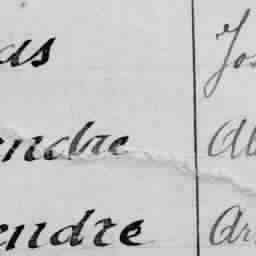 as Jos
endre Al
endre Ar